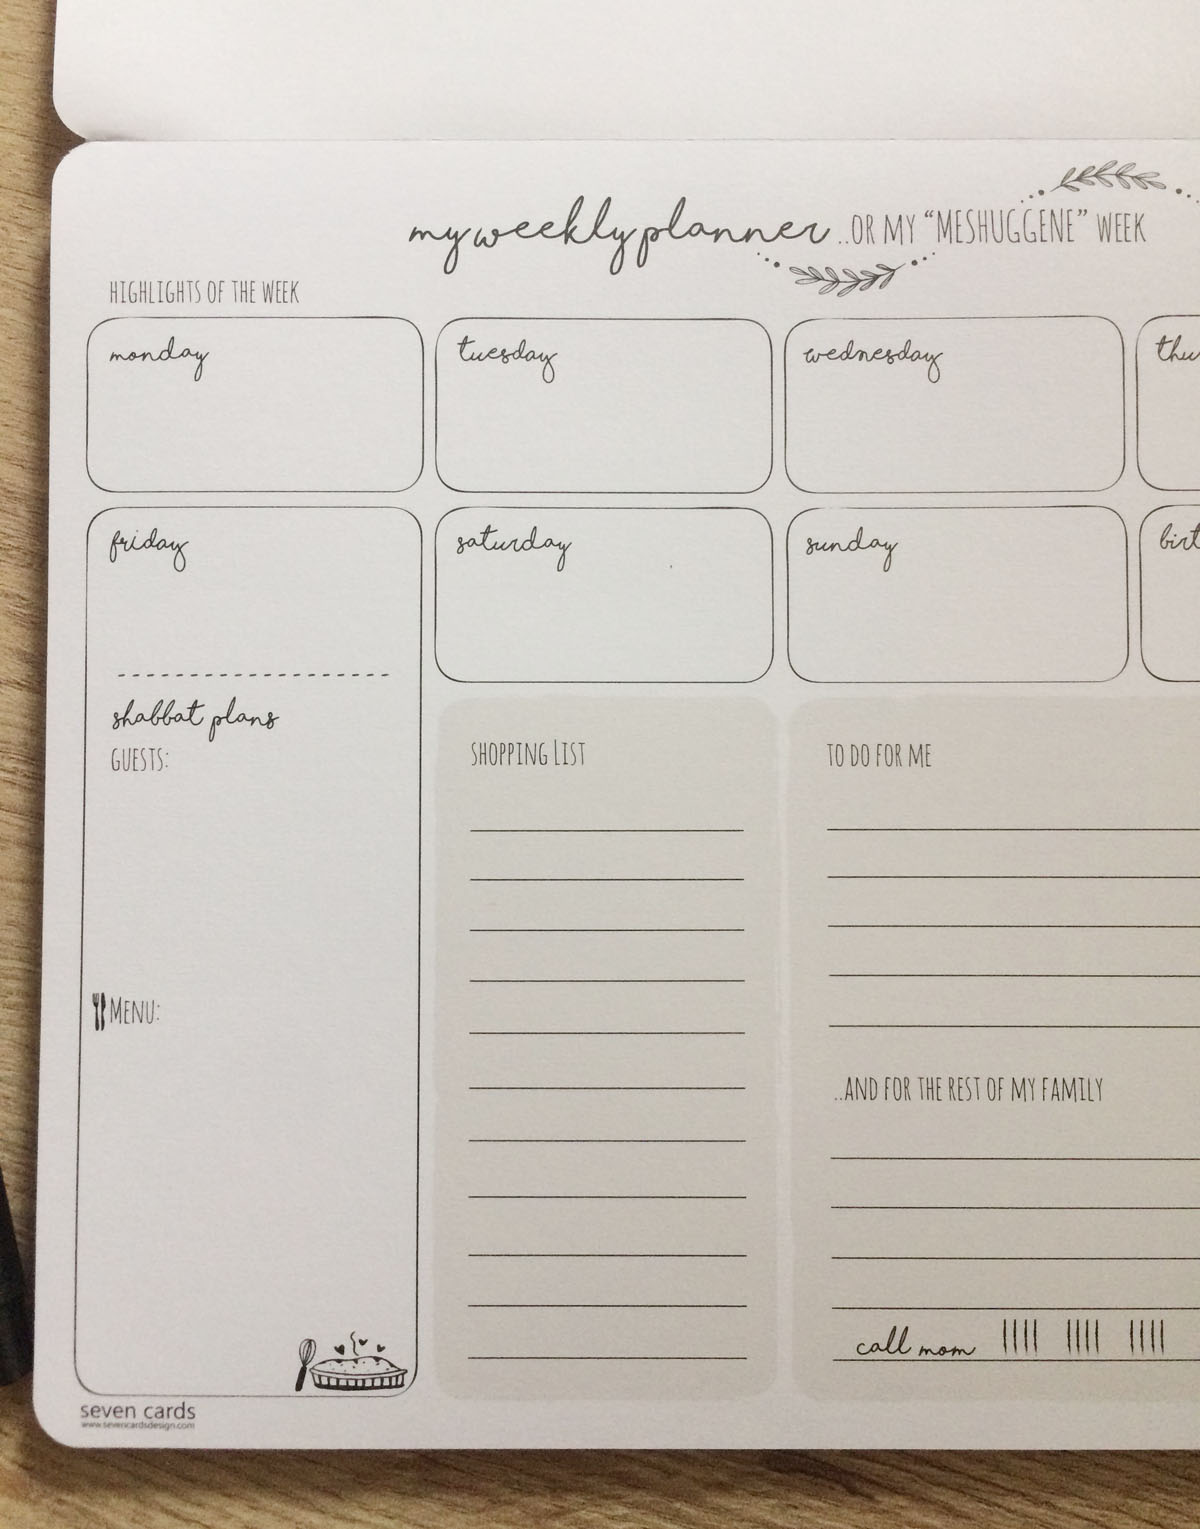 my weekly planner ..OR MY “MESHUGGENE” WEEK
HIGHLIGHTS OF THE WEEK
monday
tuesday
wednesday
thu
friday
saturday
sunday
birt
shabbat plans
GUESTS:
MENU:
SHOPPING LIST
TO DO FOR ME
..AND FOR THE REST OF MY FAMILY
call mom
seven cards
www.sevencardsdesign.com